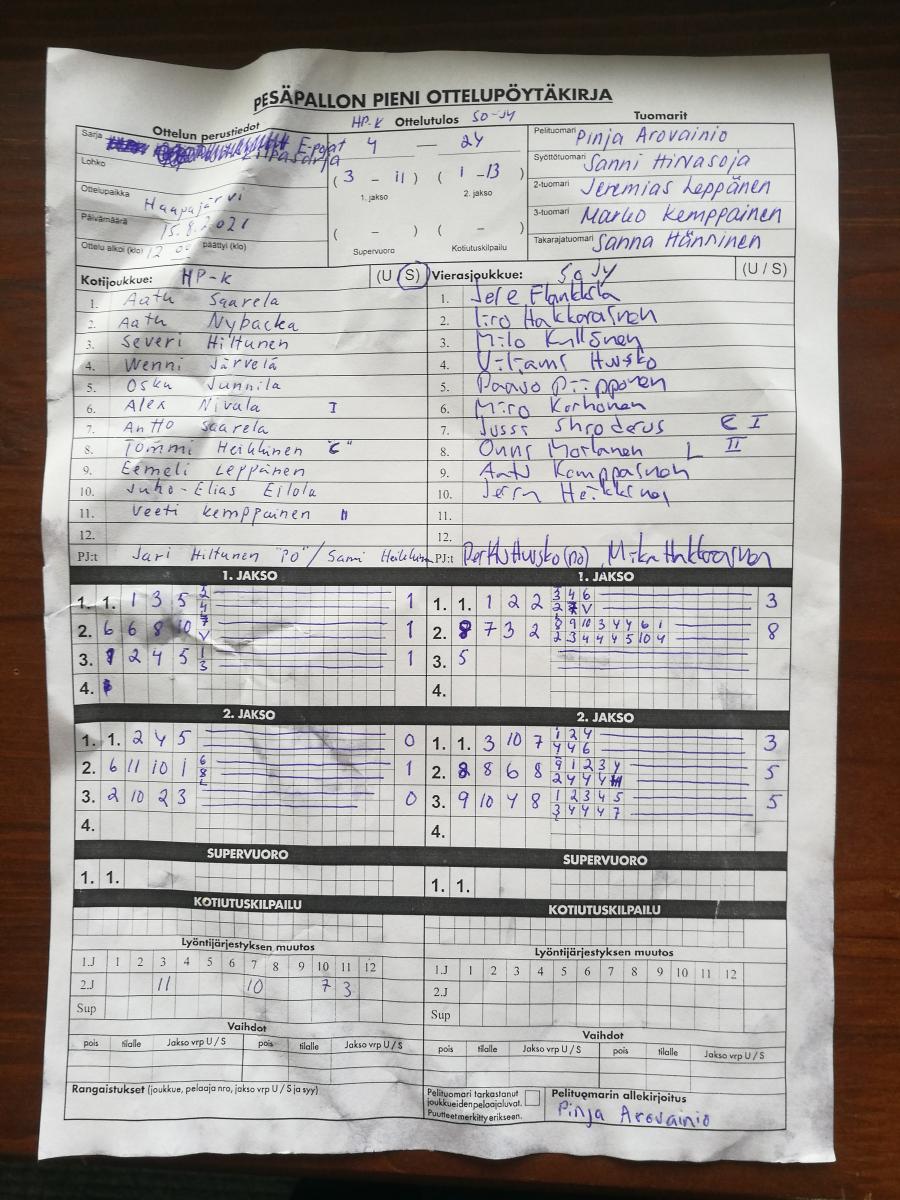 PESÄPALLON PIENI OTTELUPÖYTÄKIRJA
Ottelun perustiedot
HP-K Ottelutulos SO-JY
Tuomarit
Sarja E-pojat
Kilpasarja
4 — 24
Pelituomari Pinja Arovainio
Lohko
(3 - 11) (1 - 13)
1. jakso 2. jakso
Syöttötuomari Sanni Hirvasoja
Ottelupaikka Haapajärvi
2-tuomari Jeremias Leppänen
Päivämäärä 15.8.2021
( - ) ( - )
3-tuomari Marko Kemppainen
Ottelu alkoi (klo) 12 00 päättyi (klo)
Supervuoro Kotiutuskilpailu
Takarajatuomari Sanna Hänninen
Kotijoukkue: HP-K (U / S)
Vierasjoukkue: SoJy (U / S)
1. Aatu Saarela
2. Aatu Nybacka
3. Severi Hiltunen
4. Wenni Järvelä
5. Osku Junnila
6. Alex Nivala I
7. Antto Saarela
8. Tommi Heikkinen "C"
9. Eemeli Leppänen
10. Juho-Elias Eilola
11. Veeti Kemppainen II
12.
PJ:t Jari Hiltunen "PO" / Sami Heikkinen
1. Jere
2. Iiro Hakkarainen
3. Milo Kyllönen
4. Viljami Huusko
5. Paavo Piipponen
6. Miro Korhonen
7. Jussi Shroderus C I
8. Onni L II
9. Antti Kemppainen
10. Heikkinen
11.
12.
PJ:t Pertti Huusko (PO), Mika Hakkarainen
1. JAKSO
1. 1. 1 3 5 1
2. 6 6 8 10 1
3. 1 2 4 5 1
4.
1. JAKSO
1. 1. 1 2 2 3 4 6 3
2 7 V
2. 8 7 3 2 8 9 10 3 4 4 6 1 8
2 3 4 4 4 5 10 4
3. 5
4.
2. JAKSO
1. 1. 2 4 5 0
2. 6 11 10 1 1
3. 2 10 2 3 0
4.
2. JAKSO
1. 1. 3 10 7 1 2 4 3
4 4 6
2. 8 8 6 8 9 1 2 3 4 5
2 4 4 4
3. 9 10 4 8 1 2 3 4 5 5
3 4 4 4 7
4.
SUPERVUORO
1. 1.
SUPERVUORO
1. 1.
KOTIUTUSKILPAILU
KOTIUTUSKILPAILU
Lyöntijärjestyksen muutos
1.J 1 2 3 4 5 6 7 8 9 10 11 12
2.J 11 10 7 3
Sup
Lyöntijärjestyksen muutos
1.J 1 2 3 4 5 6 7 8 9 10 11 12
2.J
Sup
Vaihdot
pois tilalle Jakso vrp U / S pois tilalle Jakso vrp U / S
Vaihdot
pois tilalle Jakso vrp U / S pois tilalle Jakso vrp U / S
Rangaistukset (joukkue, pelaaja nro, jakso vrp U / S ja syy)
Pelituomari tarkastanut
joukkueiden pelaajaluvat.
Puutteet merkitty erikseen.
Pelituomarin allekirjoitus
Pinja Arovainio